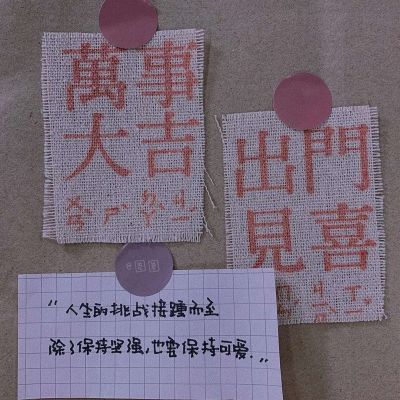 萬事
大吉
出門
見喜
"人生的挑战接踵而至
除了保持坚强,也要保持可爱."